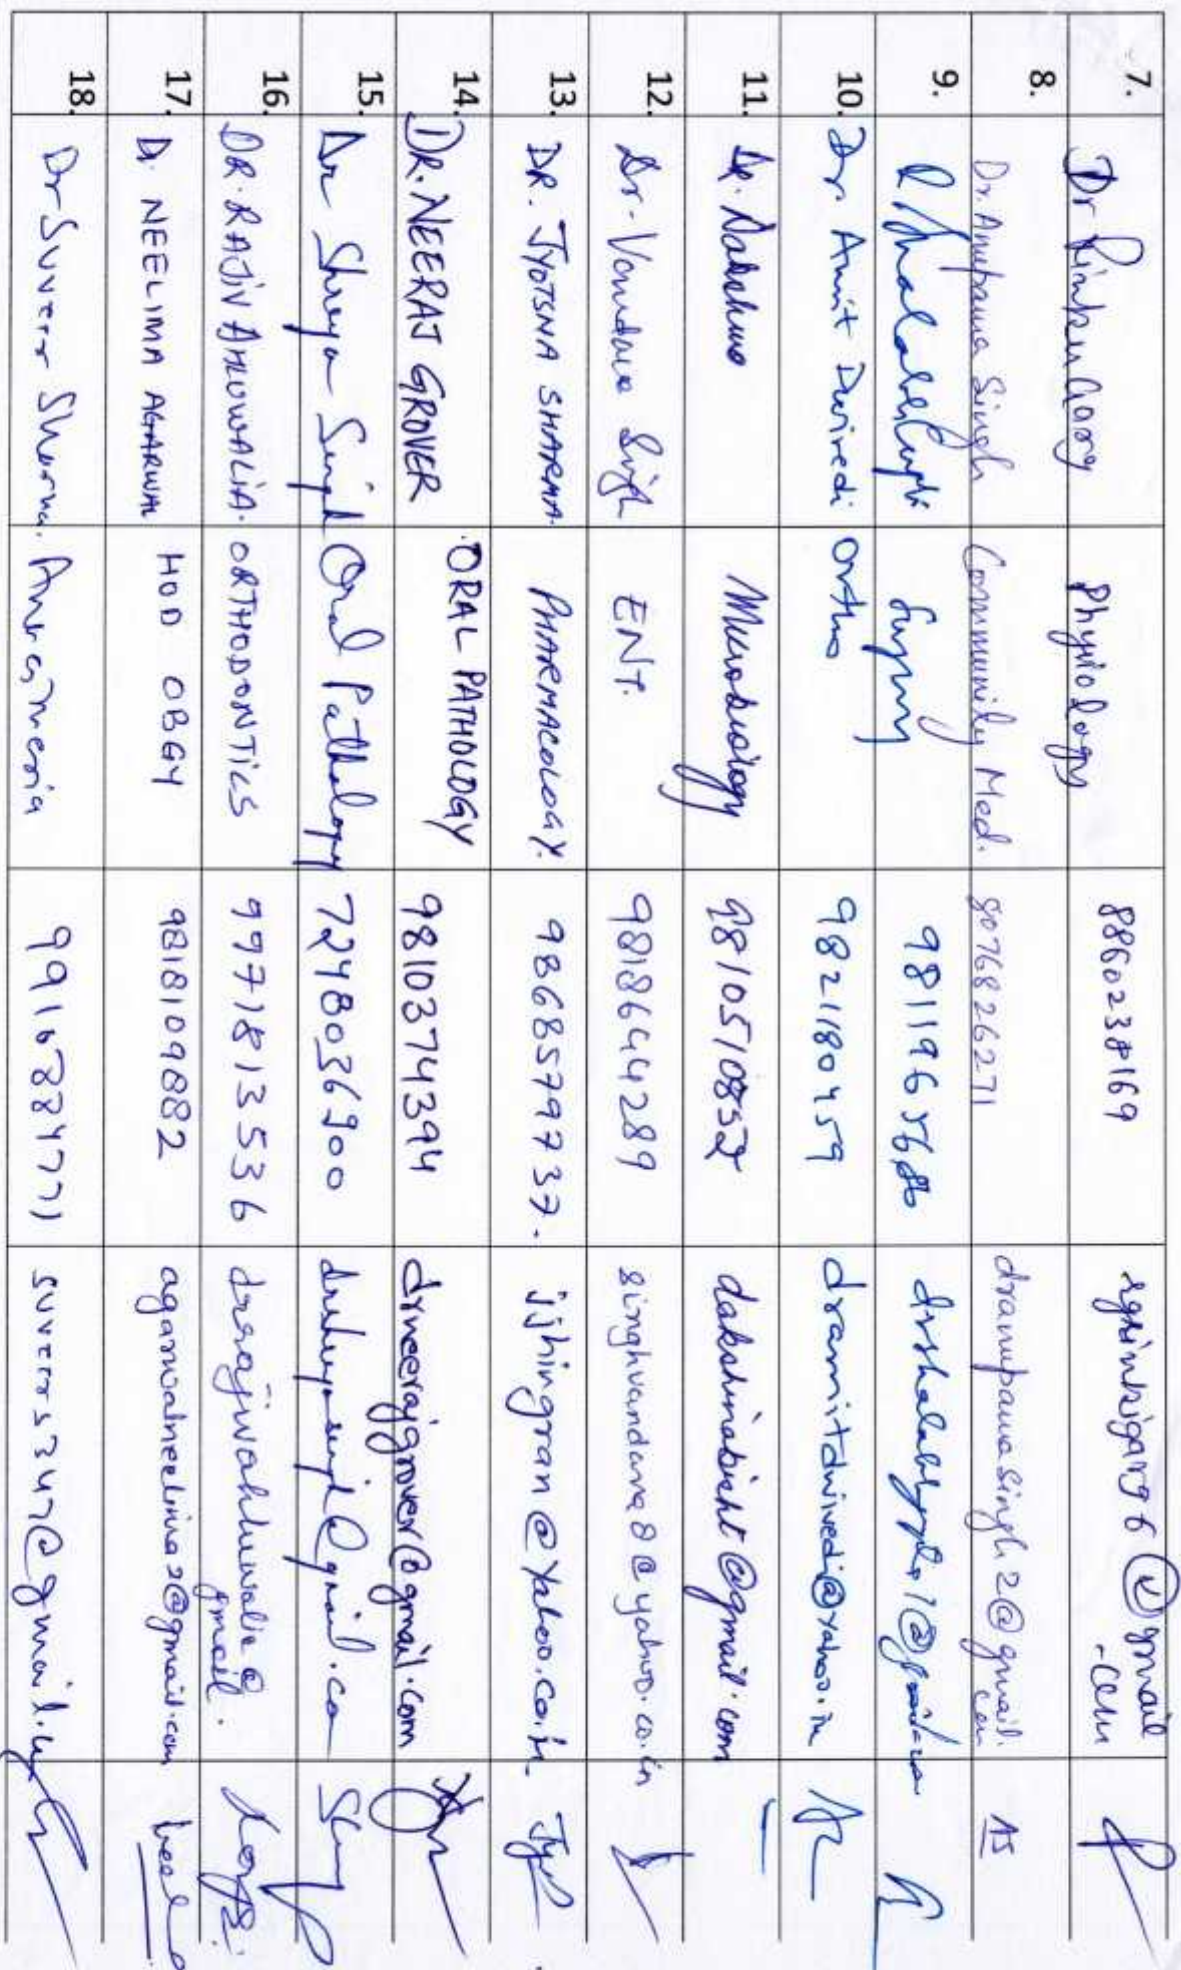 7. Dr Rinku Garg Physiology 8860238169 rgrinkigarg6@gmail
.com
8. Dr. Anupama Singh Community Med. 8076826271 dranupamasingh2@gmail.
com AS
9. Surgery
10. Dr. Amit Dwivedi Ortho 9821180459 dramitdwivedi@yahoo.in
11. Dr. Dakshina Microbiology 9810510852 dakshinabisht@gmail.com
12. Dr. Vandana Singh ENT. 9818644289 singhvandana8@yahoo.co.in
13. DR. JYOTSNA SHARMA PHARMACOLOGY. 9868579737. jjhingran@yahoo.co.in
14. DR. NEERAJ GROVER ORAL PATHOLOGY 9810374394 drneerajgrover@gmail.com
15. Dr Shreya Singh Oral Pathology 7248036900 drshreyasingh@gmail.com
16. DR. RAJIV AHLUWALIA. ORTHODONTICS 9971813536 drrajivahluwalia@
gmail.
17. Dr. NEELIMA AGARWAL HOD OBGY 9818109882 agarwalneelima2@gmail.com
18. Dr Suveer Sharma. Anaesthesia